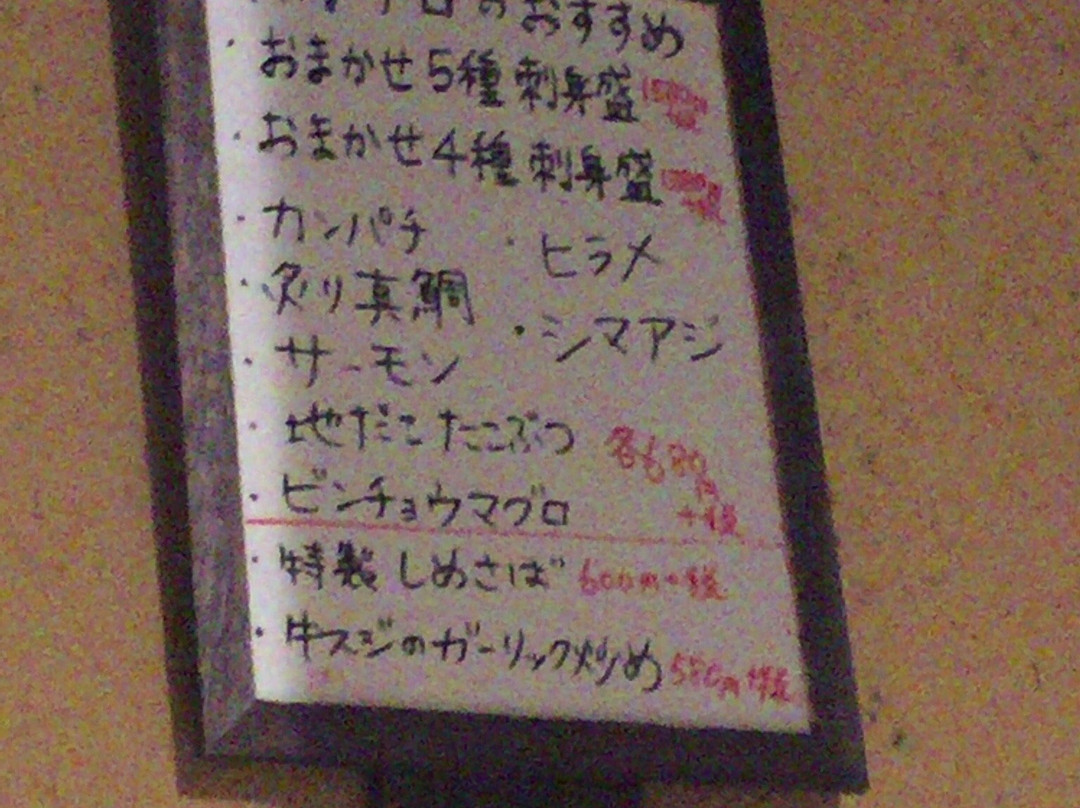 のおすすめ
・おまかせ5種刺身盛
・おまかせ4種刺身盛
・カンパチ ・ヒラメ
・炙り真鯛 ・シマアジ
・サーモン
・地だこたこぶつ 各680円+税
・ビンチョウマグロ
・特製しめさば 600円+税
・牛スジのガーリック炒め 580円+税